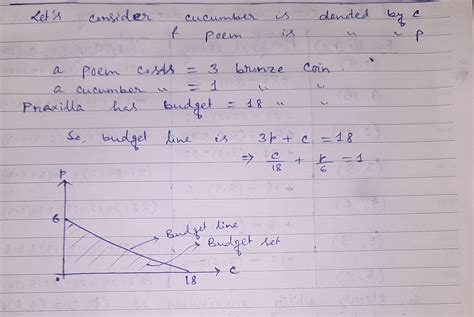 Let's consider cucumber is denoted by c
& poem is " " p
a poem costs = 3 bronze coin.
a cucumber " = 1 " "
Praxilla has budget = 18 " "
So, budget line is 3p + c = 18
⇒ c/18 + p/6 = 1
p
6
Budget line
Budget set
0
18
c